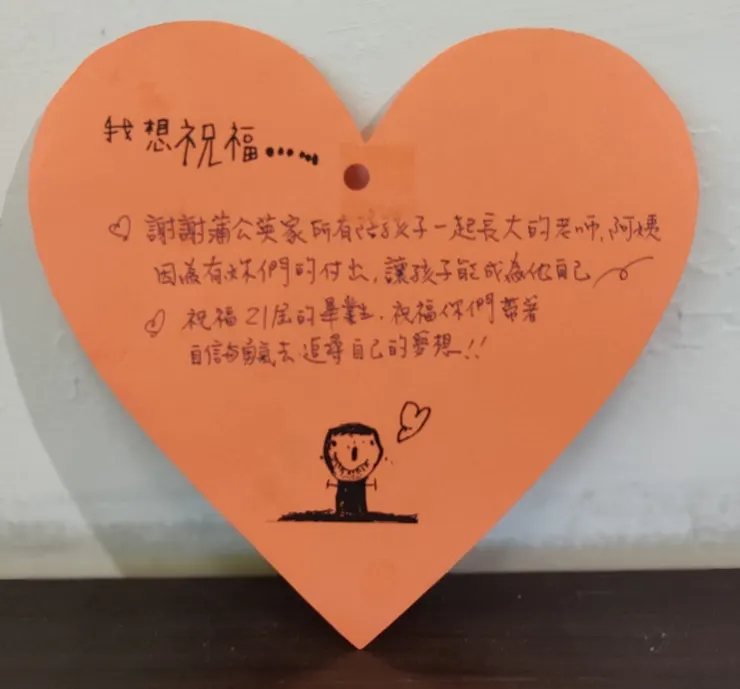 我想祝福.....
♡ 謝謝蒲公英家所有陪孩子一起長大的老師,阿姨
因為有妳們的付出,讓孩子能成為他自己
♡ 祝福21屆的畢業生.祝福你們帶著
自信與勇氣去追尋自己的夢想!!